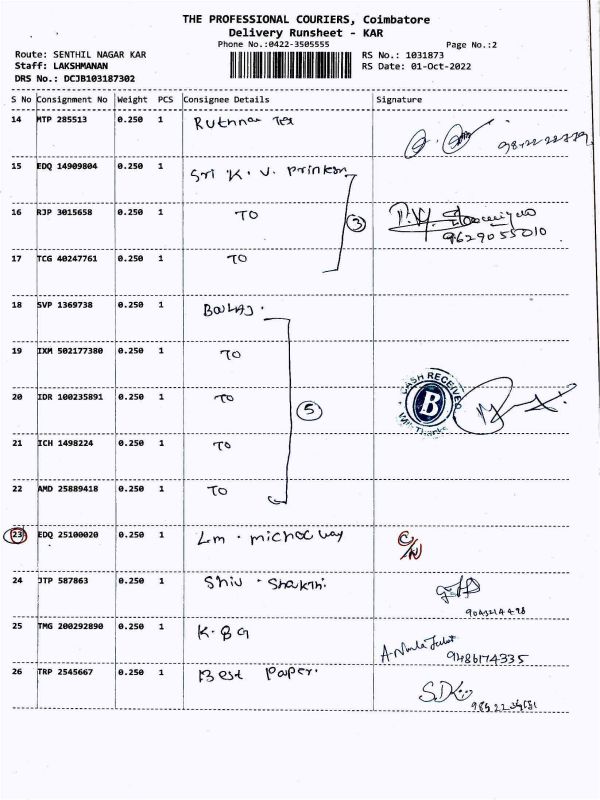 THE PROFESSIONAL COURIERS, Coimbatore
Delivery Runsheet - KAR
Phone No.:0422-3505555 Page No.:2
Route: SENTHIL NAGAR KAR RS No.: 1031873
Staff: LAKSHMANAN RS Date: 01-Oct-2022
DRS No.: DCJB103187302
S No Consignment No Weight PCS Consignee Details Signature
14 MTP 285513 0.250 1 Ruthna Tex
15 EDQ 14909804 0.250 1 Sri K. V. Printers
16 RJP 3015658 0.250 1 TO 3
9629055010
17 TCG 40247761 0.250 1 TO
18 SVP 1369738 0.250 1
19 IXM 502177380 0.250 1 TO
20 IDR 100235891 0.250 1 TO 5 CASH RECEIVED B With Thanks
21 ICH 1498224 0.250 1 TO
22 AMD 25889418 0.250 1 TO
23 EDQ 25100020 0.250 1 Lm. C/N
24 JTP 587863 0.250 1 Shiv. Shakthi
25 TMG 200292890 0.250 1 K. B G
9486174335
26 TRP 2545667 0.250 1 Best Paper.
S.DK